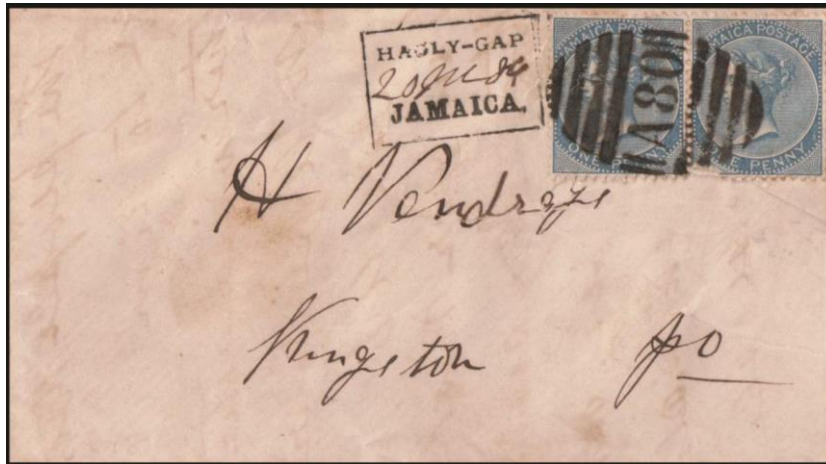 HAGLY-GAP
20 84
JAMAICA.
JAMAICA POSTAGE
ONE PENNY
A80
JAMAICA POSTAGE
ONE PENNY
H Vendryes
Kingston PO